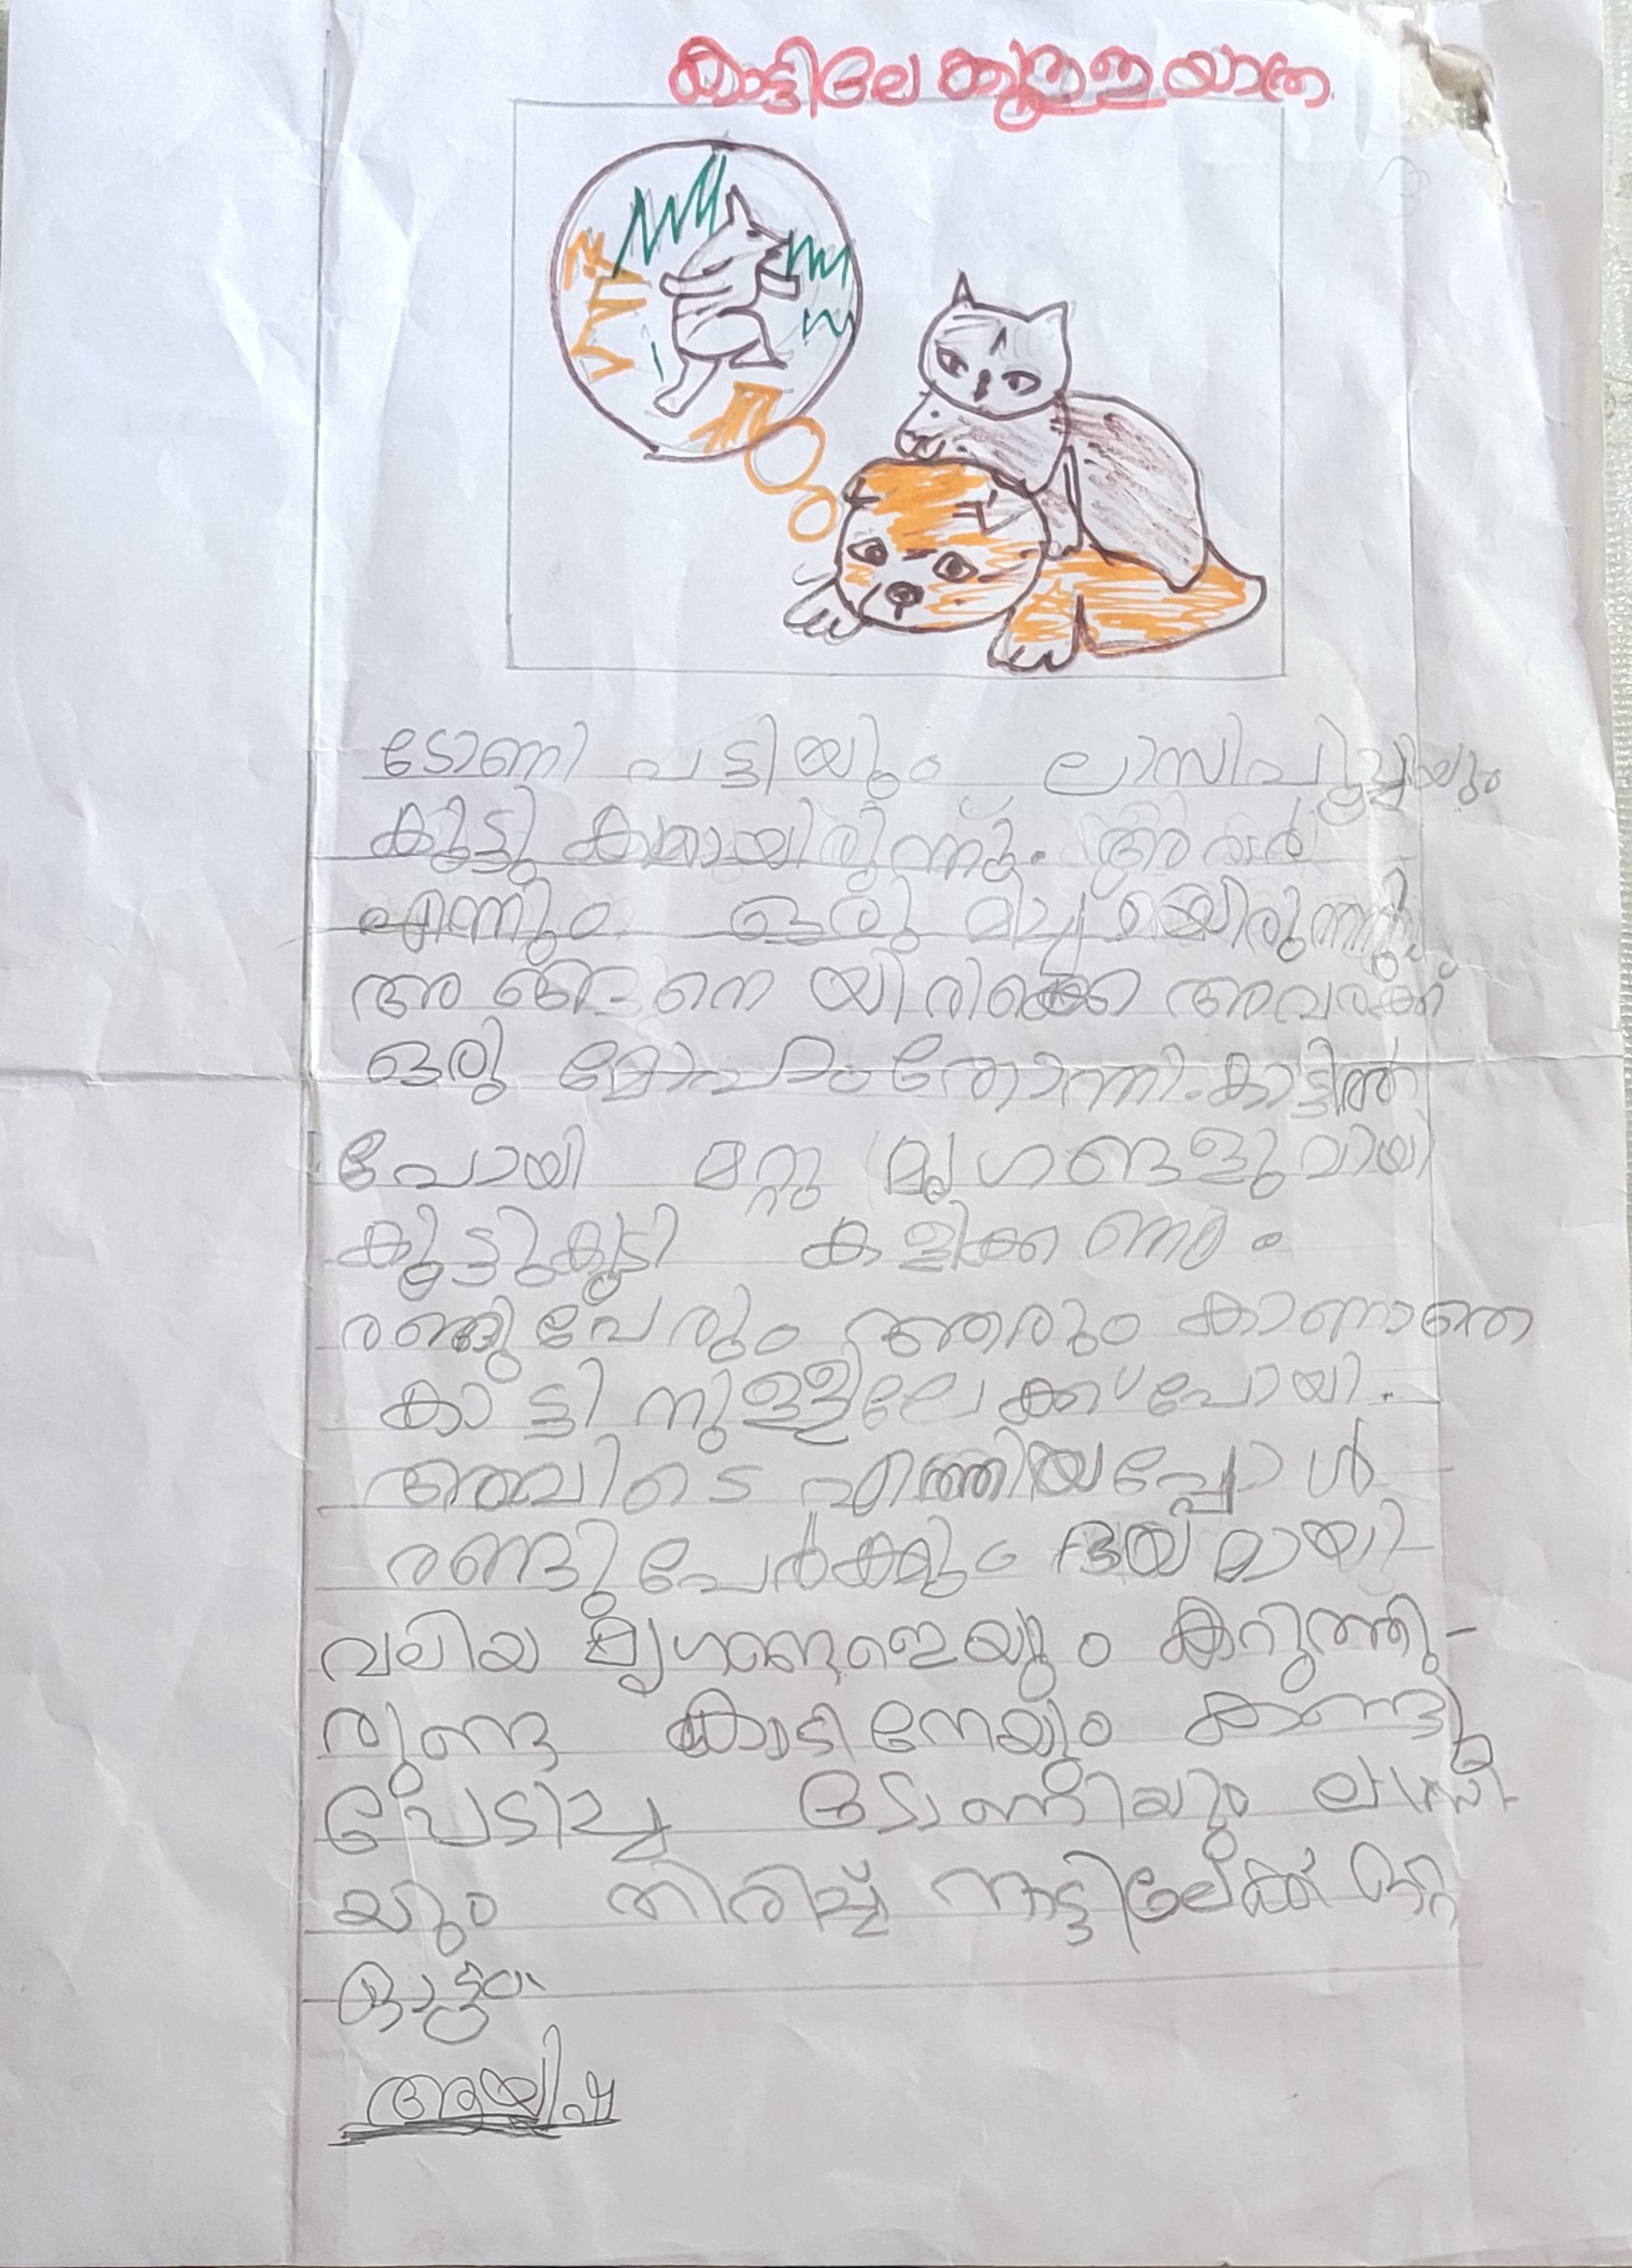 കാട്ടിലേ
ടോണി പട്ടിയും ലാസിപൂച്ചയും
കൂട്ടു കാരായിരുന്നു. അവർ
എന്നും ഒരുമിച്ച്
അങ്ങനെ യിരിക്കെ അവരക്ക്
ഒരു മോഹം തോന്നി. കാട്ടിൽ
പോയി മറ്റു മൃഗങ്ങളുമായി
കൂട്ടുകൂടി കളിക്കണം.
രണ്ടുപേരും ആരും കാണാതെ
കാട്ടിനുള്ളിലേക്ക് പോയി.
അവിടെ എത്തിയപ്പോൾ
രണ്ടുപേർക്കും ഭയമായി
വലിയ കറുത്തി-
രുണ്ട കാടിനേയും കണ്ടു
പേടിച്ചു ടോണിയും ലാസി-
യും തിരിച്ച് നാട്ടിലേക്ക് ഒറ്റ
ഓട്ടം